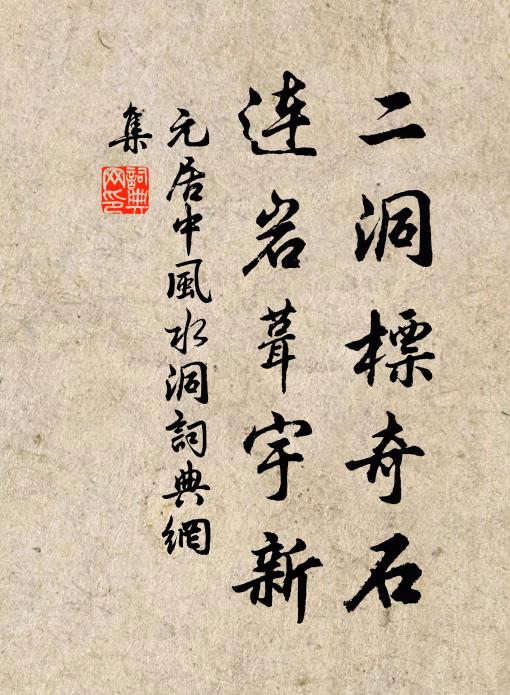 二洞標奇石
連岩葺宇新
元居中風水洞詞典網
集
詞典
网印